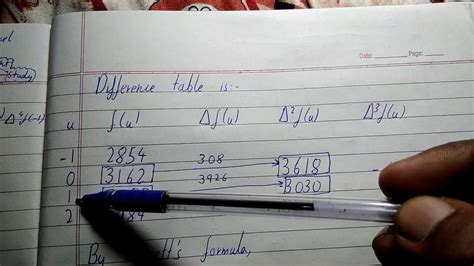 Date: Page:
Difference table is:-
u f(u) Δf(u) Δ²f(u) Δ³f(u)
-1 2854 308
0 3162 3426 3618
1 3030
2 184
By formula,